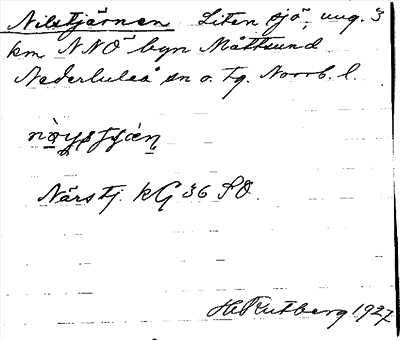 Nilstjärnen Liten sjö, ung. 3
km NNO byn Måttsund
Nederluleå sn o. tg. Norrb. l.
Närstj. kG 36 SO.
H Rutberg 1927